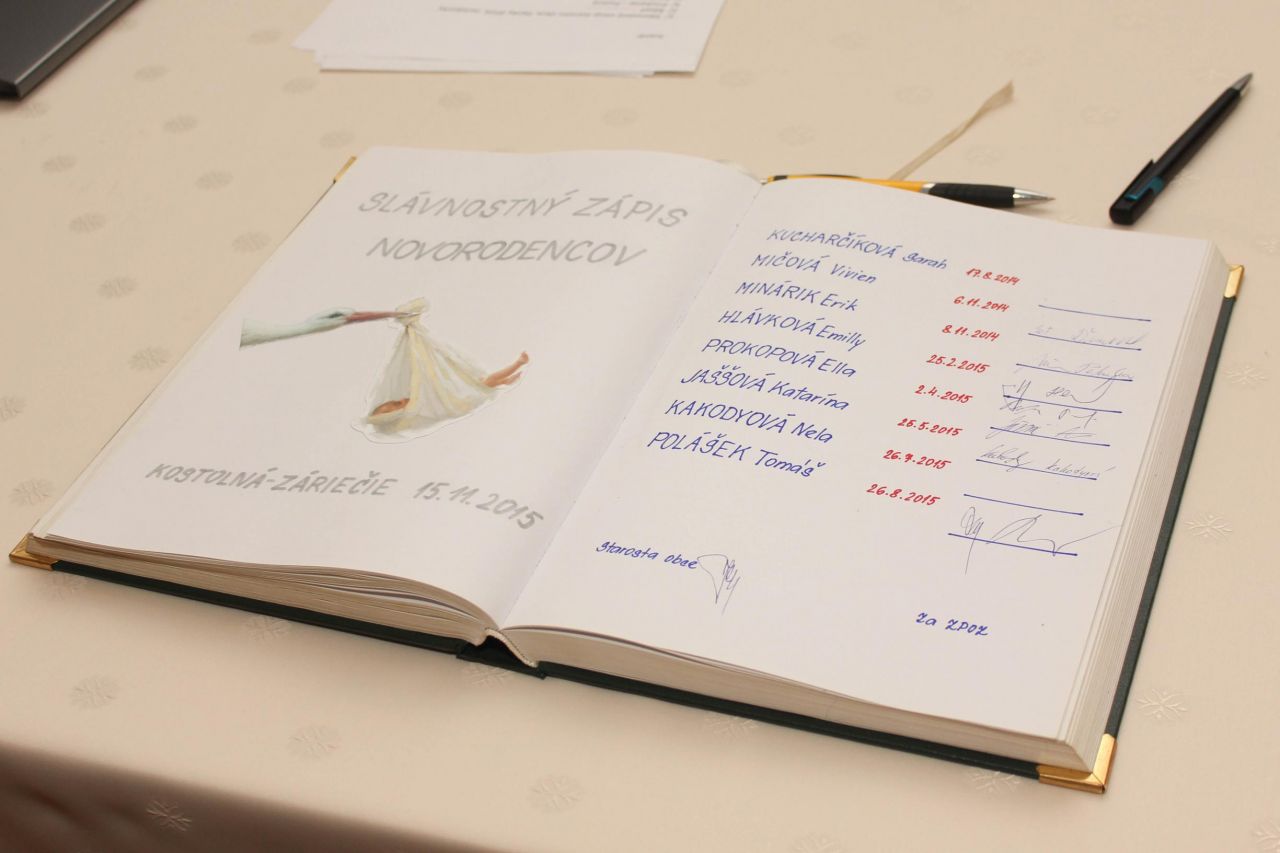 SLÁVNOSTNÝ ZÁPIS
NOVORODENCOV
KOSTOLNÁ-ZÁRIEČIE 15.11.2015
KUCHARČÍKOVÁ Sarah 17.8.2014
MIČOVÁ Vivien 6.11.2014
MINÁRIK Erik 8.11.2014
HLÁVKOVÁ Emilly 25.2.2015
PROKOPOVÁ Ella 2.4.2015
JAŠŠOVÁ Katarína 25.5.2015
KAKODYOVÁ Nela 26.7.2015
POLÁŠEK Tomáš 26.8.2015
Starosta obce
Za ZPOZ